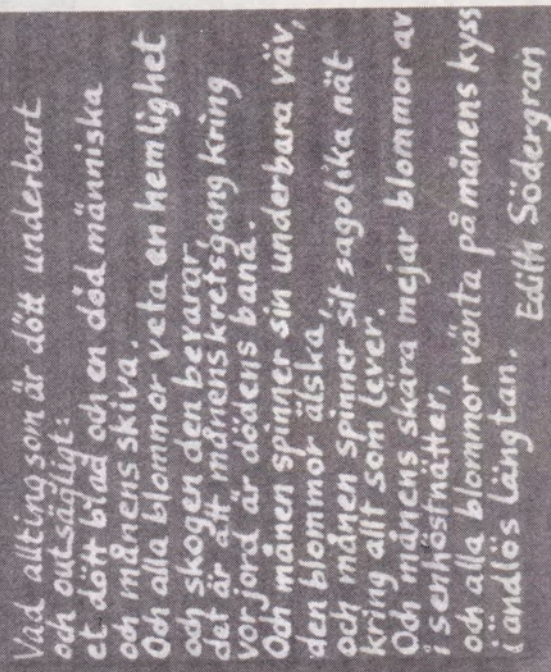 Vad allting som är dött underbart
och outsägligt:
et dött blad och en död människa
och månens skiva.
Och alla blommor veta en hemlighet
och skogen den bevarar,
det är att månens kretsgang kring
vor jord är dödens bana.
Och månen spinner sin underbara väv,
den blommor älska,
och månen spinner sit sagolika nät
kring allt som lever.
Och månens skära mejar blommor av
i senhöstnätter,
och alla blommor vänta på månens kyss
i ändlös längtan.
Edith Södergran